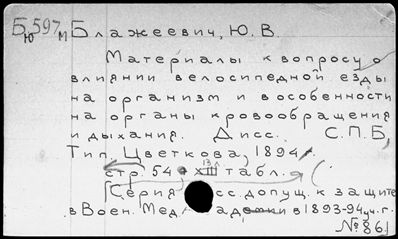 Б 597 Блажеевич, Ю. В.
Ю м
Материалы к вопросу о
влиянии велосипедной езды
на организм и в особенности
на органы кровообращения
и дыхания. Дисс. С.П.Б,
Тип. Цветкова, 1894.
стр. 54 + XIII табл.
13 л.
(Серия дисс. допущ. к защите
в Воен. Мед. Академии в 1893-94 уч. г.
№ 86)